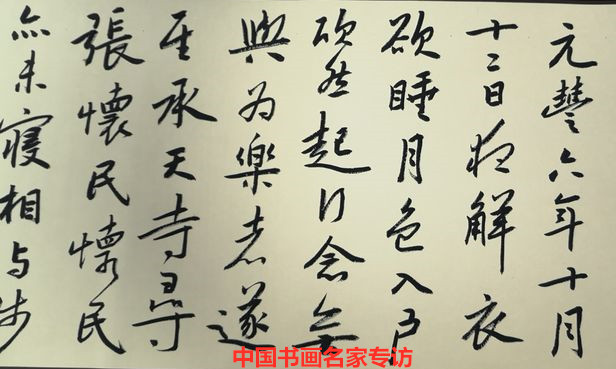 元豐六年十月
十二日夜解衣
欲睡月色入户
欣然起行念無
與為樂者遂
至承天寺尋
張懷民懷民
亦未寢相与步
中国书画名家专访